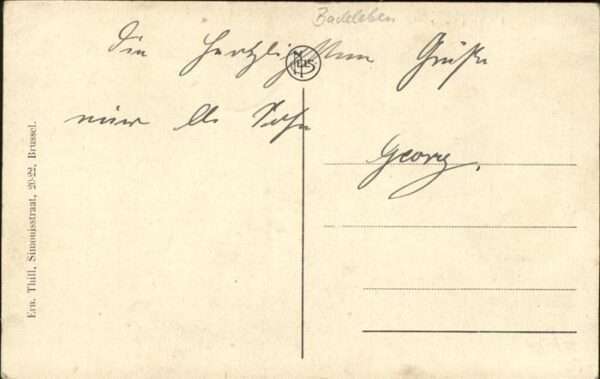 Badeleben
Die herzlichsten Grüße
Georg.
Ern. Thill, Simonisstraat, 20-22, Brussel.